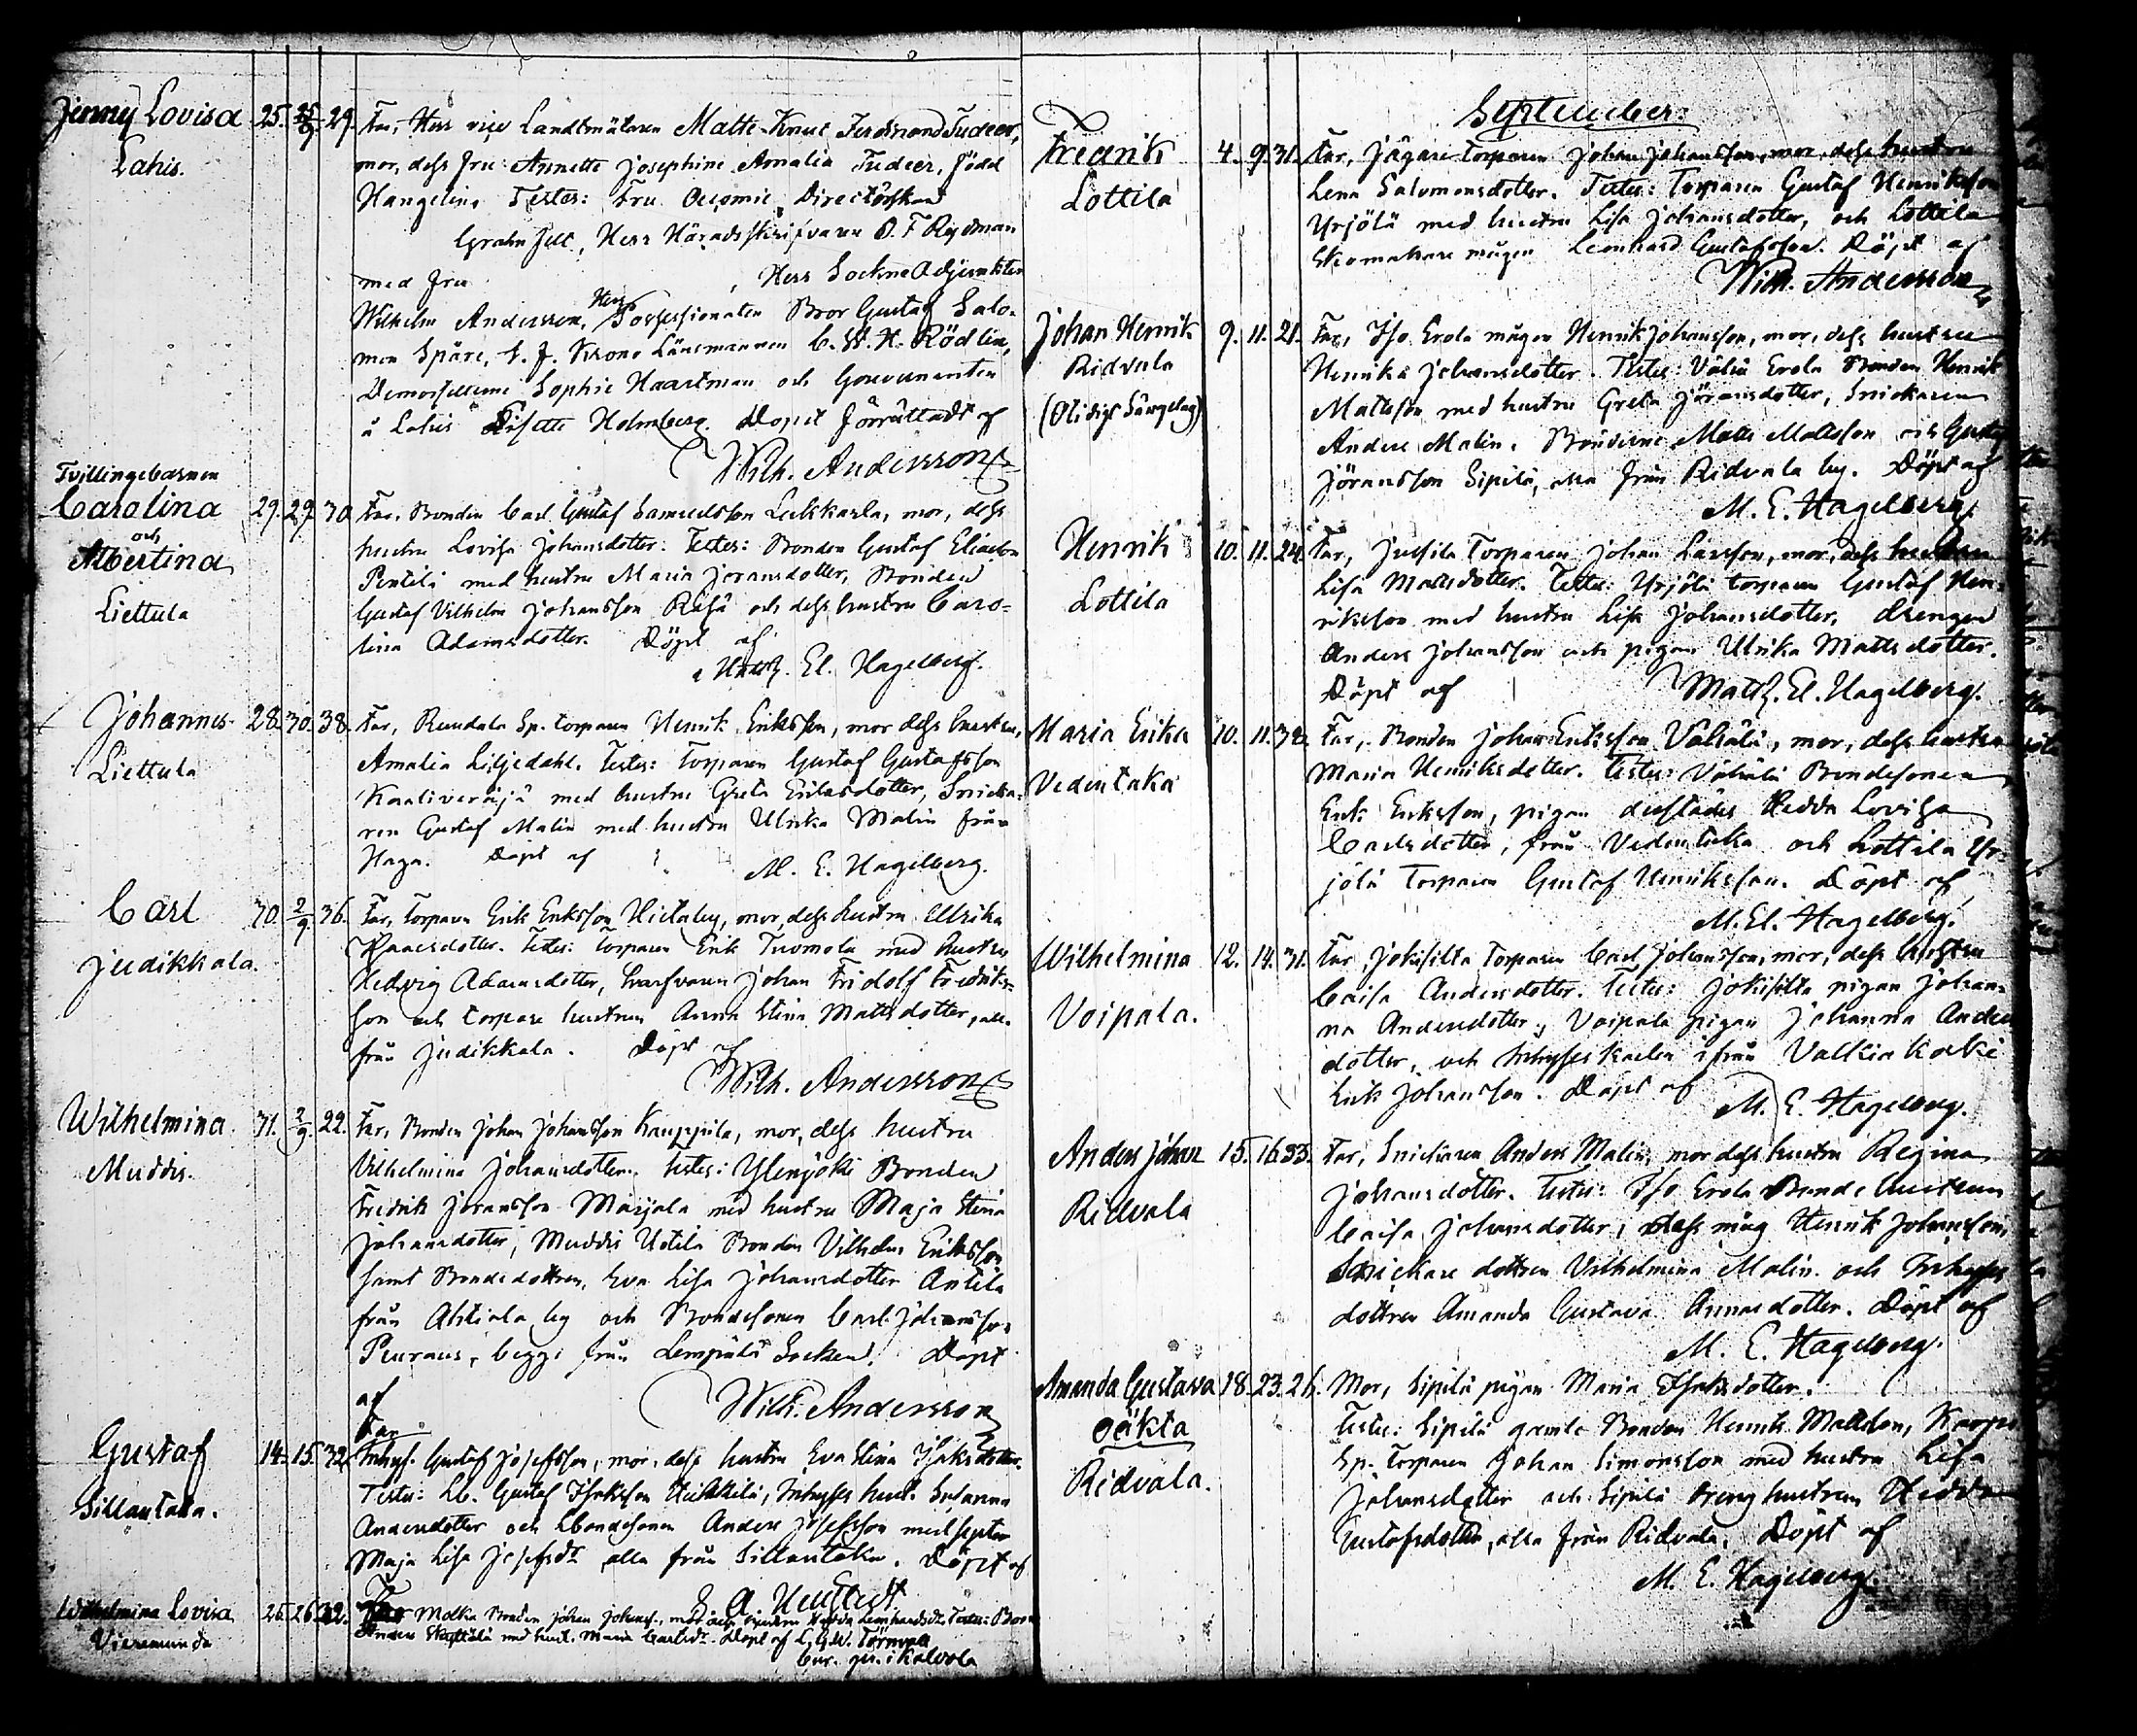 Jenny Lovisa 25. 25/9. 29. Far, Herr vice Landtmätaren Matte Knut Ferdinand Tudeer,
Lahis. mor, dess fru Annette Josephine Amalia Tudeer, född
Hangelin. Testes: Fru Directörskan
Herr Häradsskrifvaren
med fru , Herr SockneAdjunkten
Wilhelm Andersson, Herr Possessionaten Bror Gustaf Salo-
mon Spåre, t. f. Krono Länsmannen C. W. H. Rödlin,
Demoisellerne Sophie Haartman och Gouvernanten
å Lahis Lisette Holmberg. Dopet förrättadt af
Wilh. Andersson
Tvillingebarnen
Carolina 29. 29. 30. Far, Bonden Carl Gustaf Samuelsson Lukkarla, mor, dess
och
Albertina hustru Lovisa Johansdotter. Testes: Bonden Gustaf Eliasson
Liettula Pentilä med hustru Maria Jöransdotter, Bonden
Gustaf Vilhelm Johansson och dess hustru Caro-
lina Adamsdotter. Döpt af
Matth. El. Hagelberg.
Johannes 28. 30. 38. Far, Sp. torparen Henrik Eriksson, mor dess hustru,
Liettula Amalia Liljedahl. Testes: Torparen Gustaf Gustafsson
med hustru Greta Eriksdotter, Snicka-
ren Gustaf Malin med hustru Ulrika Malin från
Haga. Döpt af M. E. Hagelberg.
Carl 30. 2/9 36. Far, Torparen Erik Eriksson Hietaley, mor, dess hustru Ulrika
Judikkala. Testes: Torparen Erik Tuomola med hustru
Hedvig Adamsdotter, Svarfvaren Johan Fridolf Fredriks-
son och torpare hustrun Anna Stina Mattsdotter, alla
från Judikkala. Döpt af
Wilh. Andersson
Wilhelmina 31. 2/9. 22. Far, Bonden Johan Johansson Kauppila, mor, dess hustru
Muddis. Vilhelmina Johansdotter. Testes: Ylenjoki Bonden
Fredrik Jöransson Marjala med hustru Maja Stina
Johansdotter, Muddis Uotila Bonden Vilhelm Eriksson
samt Bondedottren, Eva Lisa Johansdotter Antila
från Ahtiala by och Bondesonen Carl Johansson
Peuraus, begge från Lempälä Socken. Döpt
af Wilh. Andersson
Gustaf 14. 15. 32. Far Inhys. Gustaf Josefsson, mor, dess hustru Eva Stina Isaksdotter.
Sillantaka. Testes: Gustaf Isaksson Heikkilä, Inhyses hust. Susanna
Andersdotter och Bondesonen Anders Josefsson med syster
Maja Lisa Josefsdr alla från Sillantaka. Döpt af
Wilhelmina Lovisa 26. 26. 32. Far Matka Bonden Johan Johans., mor dess hustru Hedda Leonhardsdr. Testes: Bonden
Anders med hust. Maria Carlsdr. Döpt af C. G. W. Törnvall
i Kalvola
September.
Fredrik 4. 9. 31. Far, Jägare torparen Johan Johansson, mor, dess hustru
Lottila Lena Salomonsdotter. Testes: Torparen Gustaf Henriksson
Yrjölä med hustru Lisa Johansdotter, och Lottila
Skomakare mågen Leonhard Gustafsson. Döpt af
Wilh. Andersson
Johan Henrik 9. 11. 21. Far, Iso Erola mågen Henrik Johansson, mor, dess hustru
Ridvala Henrika Johansdotter. Testes: Vähä Erola Bonden Henrik
(Otidigt Sängelag) Mattsson med hustru Greta Jöransdotter, Snickaren
Anders Malin. Bönderne Matts Mattsson och Gustaf
Jöransson Sipilä, alla från Ridvala by. Döpt af
M. E. Hagelberg.
Henrik 10. 11. 24. Far, Jussila Torparen Johan Larsson, mor, dess hustru
Lottila Lisa Mattsdotter. Testes: Yrjölä torparen Gustaf Hen-
riksson med hustru Lisa Johansdotter, drengen
Anders Johansson och pigan Ulrika Mattsdotter.
Döpt af Matth. El. Hagelberg.
Maria Erika 10. 11. 32. Far, Bonden Johan Eriksson Vähälä, mor, dess hustru
Vedentaka Maria Henriksdotter. Testes: Vähälä Bondesonen
Erik Eriksson, pigan derstädes Hedda Lovisa
Carlsdotter, från Vedentaka och Lottila Yr-
jölä Torparen Gustaf Henriksson. Döpt af
M. El. Hagelberg.
Wilhelmina 12. 14. 31. Far, Jokisilta Torparen Carl Johansson, mor, dess hustru
Voipala. Caisa Andersdotter. Testes: Jokisilta pigan Johan-
na Andersdotter, Voipala pigan Johanna Anders
dotter, och Inhyses karlen ifrån Valkiakoski
Erik Johansson. Döpt af M. E. Hagelberg.
Anders Johan 15. 16. 33. Far, Snickaren Anders Malin, mor dess hustru Regina
Ridvala Johansdotter. Testes: Iso Erola Bonde hustrun
Caisa Johansdotter, dess måg Henrik Johansson,
Snickare dottren Vilhelmina Malin och Inhyses
dottren Amanda Gustava Annasdotter. Döpt af
M. E. Hagelberg.
Amanda Gustava 18. 23. 26. Mor, Sipilä pigan Maria Isaksdotter.
oäkta Testes: Sipilä gamle Bonden Henrik Mattsson,
Ridvala. Sp. Torparen Johan Simonsson med hustru Lisa
Johansdotter och Sipilä dreng hustrun Hedda
Gustafsdotter, alla från Ridvala. Döpt af
M. E. Hagelberg.